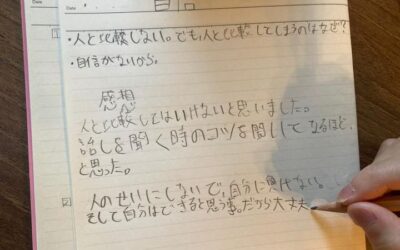 自信
Date
・人と比較しない。でも人と比較してしまうのはなぜ？
・自信がないから。
感想
人と比較してはいけないと思いました。
話しを聞く時のコツを聞して なるほど、
と思った。
人のせいにしないで、自分に負けない。
そして自分はできると思う事。だから大丈夫